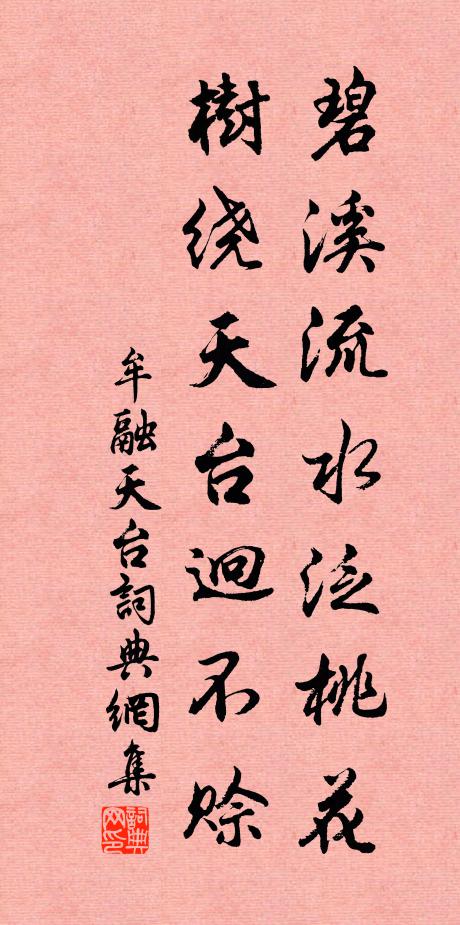 碧溪流水泛桃花
樹绕天台迥不賒
牟融天台詞典網集
詞典网印